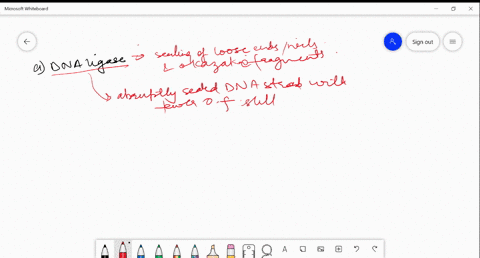 Microsoft Whiteboard
Sign out
a) DNA ligase → sealing of loose ends/
& okazaki fragments.
→ abruptly sealed DNA with
O f still